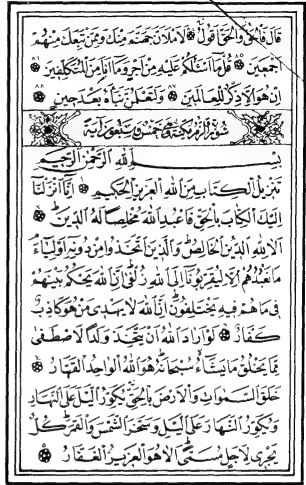 قال فالحق والحق اقول لاملئن جهنم منك وممن تبعك منهم
اجمعين قل ما اسئلكم عليه من اجر وما انا من المتكلفين
ان هو الا ذكر للعالمين ولتعلمن نباه بعد حين
سورة الزمر مكية وهي خمس وسبعون اية
بسم الله الرحمن الرحيم
تنزيل الكتاب من الله العزيز الحكيم انا انزلنا
اليك الكتاب بالحق فاعبد الله مخلصا له الدين
الا لله الدين الخالص والذين اتخذوا من دونه اولياء
ما نعبدهم الا ليقربونا الى الله زلفى ان الله يحكم بينهم
في ما هم فيه يختلفون ان الله لا يهدى من هو كاذب
كفار لو اراد الله ان يتخذ ولدا لاصطفى
مما يخلق ما يشاء سبحانه هو الله الواحد القهار
خلق السموات والارض بالحق يكور اليل على النهار
ويكور النهار على اليل وسخر الشمس والقمر كل
يجرى لاجل مسمى الا هو العزيز الغفار